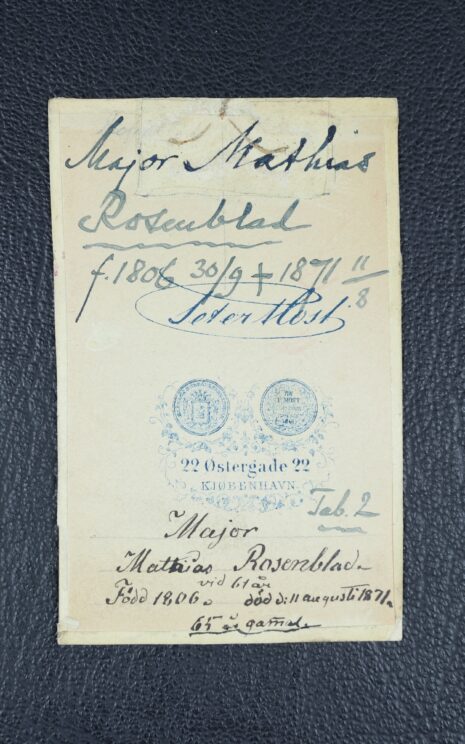 Major Mathias
Rosenblad
f. 1806 30/9 † 1871 11/8
Peter Most
22 Østergade 22
KJØBENHAVN.
Tab. 2
Major
Mathias Rosenblad.
vid 61 år
Född 1806. död d: 11 augusti 1871.
65 år gamal.